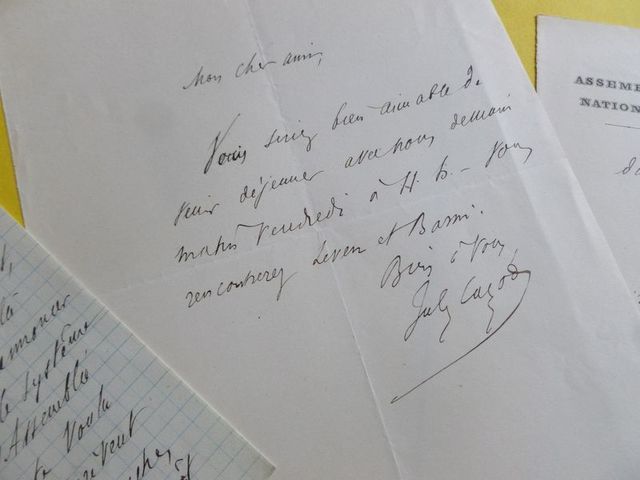 Mon cher ami,
Vous seriez bien aimable de
venir déjeuner avec nous demain
matin vendredi à H. h. – Vous
rencontrerez Leven et Barni.
Bien à vous,
Jules Cazot
ASSEMB
NATION
annoncer
le système
Assemblée